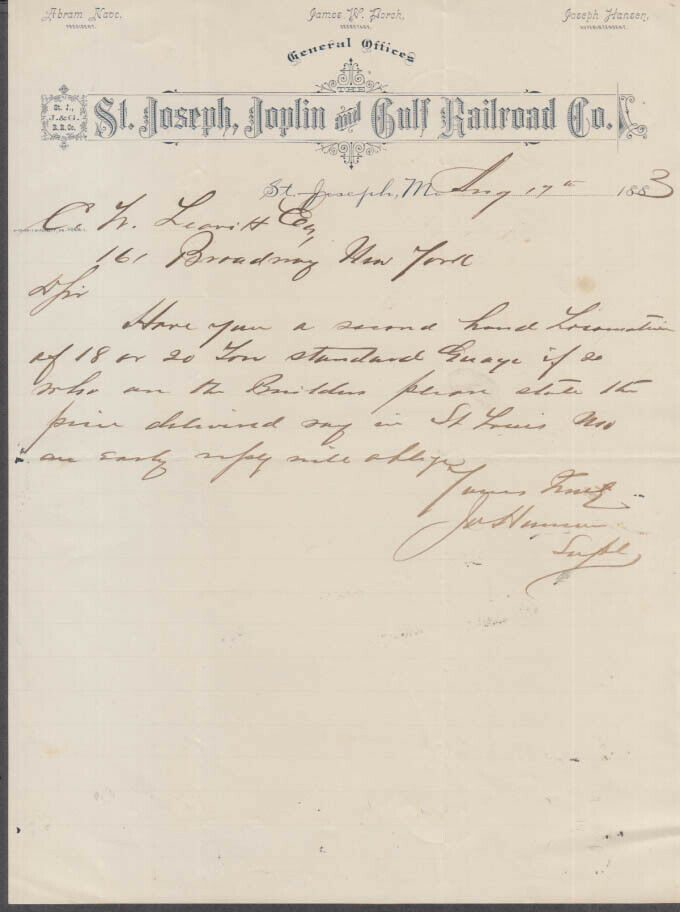 Abram Nave, James W. Dorsh, Joseph Hansen,
PRESIDENT. SECRETARY. SUPERINTENDENT.
General Offices
THE
St. J.,
J. & G.
R.R. Co.
St. Joseph, Joplin and Gulf Railroad Co.
St. Joseph, Mo Aug 17th 1883
C. W. Leavitt Esq,
161 Broadway New York
D Sir
Have you a second hand Locomotive
of 18 or 20 Ton standard Guage if so
who are the Builders please state the
price delivered say in St Louis Mo
an early reply will oblige
Yours Truly
Jos Hansen
Supt